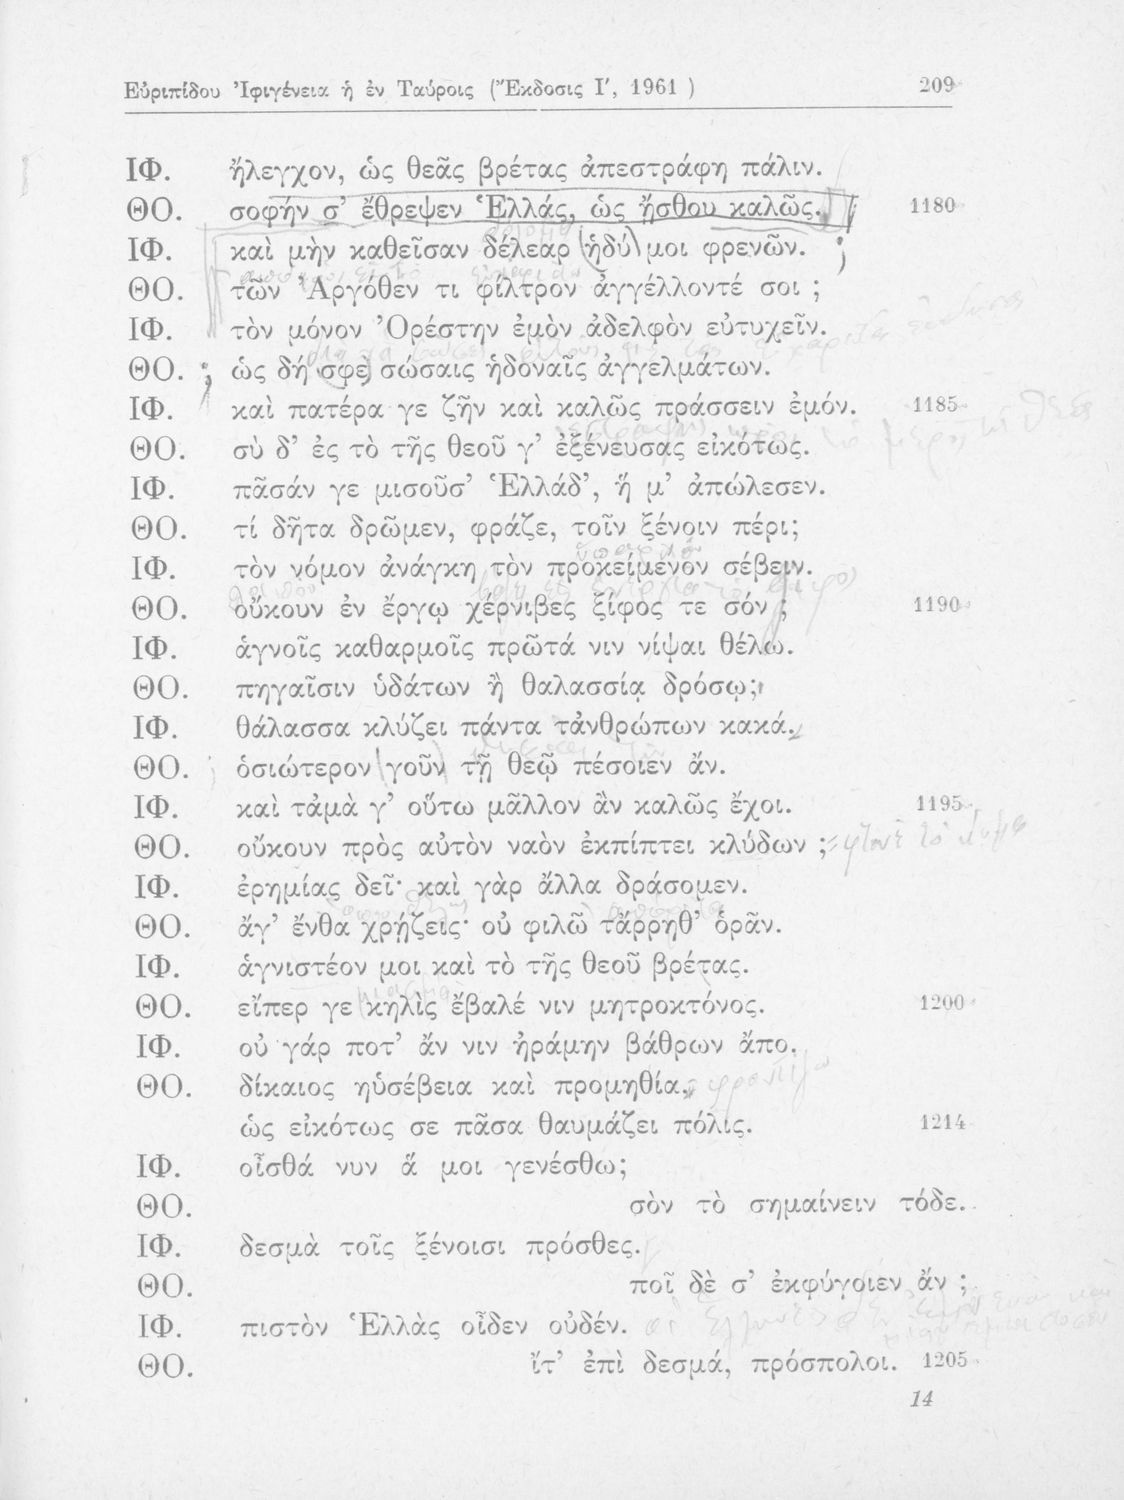 Εὐριπίδου Ἰφιγένεια ἡ ἐν Ταύροις (Ἔκδοσις Ι′, 1961 ) 209
ΙΦ. ἤλεγχον, ὡς θεᾶς βρέτας ἀπεστράφη πάλιν.
ΘΟ. σοφήν σ’ ἔθρεψεν Ἑλλάς, ὡς ᾔσθου καλῶς. 1180
ΙΦ. καὶ μὴν καθεῖσαν δέλεαρ ἡδύ μοι φρενῶν.
ΘΟ. τῶν Ἀργόθεν τι φίλτρον ἀγγέλλοντέ σοι ;
ΙΦ. τὸν μόνον Ὀρέστην ἐμὸν ἀδελφὸν εὐτυχεῖν.
ΘΟ. ὡς δή σφε σώσαις ἡδοναῖς ἀγγελμάτων.
ΙΦ. καὶ πατέρα γε ζῆν καὶ καλῶς πράσσειν ἐμόν. 1185
ΘΟ. σὺ δ’ ἐς τὸ τῆς θεοῦ γ’ ἐξένευσας εἰκότως.
ΙΦ. πᾶσάν γε μισοῦσ’ Ἑλλάδ’, ἥ μ’ ἀπώλεσεν.
ΘΟ. τί δῆτα δρῶμεν, φράζε, τοῖν ξένοιν πέρι;
ΙΦ. τὸν νόμον ἀνάγκη τὸν προκείμενον σέβειν.
ΘΟ. οὔκουν ἐν ἔργῳ χέρνιβες ξίφος τε σόν ; 1190
ΙΦ. ἁγνοῖς καθαρμοῖς πρῶτά νιν νίψαι θέλω.
ΘΟ. πηγαῖσιν ὑδάτων ἢ θαλασσίᾳ δρόσῳ;
ΙΦ. θάλασσα κλύζει πάντα τἀνθρώπων κακά.
ΘΟ. ὁσιώτερον γοῦν τῇ θεῷ πέσοιεν ἄν.
ΙΦ. καὶ τἀμὰ γ’ οὕτω μᾶλλον ἂν καλῶς ἔχοι. 1195
ΘΟ. οὔκουν πρὸς αὐτὸν ναὸν ἐκπίπτει κλύδων ;
ΙΦ. ἐρημίας δεῖ· καὶ γὰρ ἄλλα δράσομεν.
ΘΟ. ἄγ’ ἔνθα χρῄζεις· οὐ φιλῶ τἄρρηθ’ ὁρᾶν.
ΙΦ. ἁγνιστέον μοι καὶ τὸ τῆς θεοῦ βρέτας.
ΘΟ. εἴπερ γε κηλὶς ἔβαλέ νιν μητροκτόνος. 1200
ΙΦ. οὐ γάρ ποτ’ ἄν νιν ἠράμην βάθρων ἄπο.
ΘΟ. δίκαιος ηὑσέβεια καὶ προμηθία,
ὡς εἰκότως σε πᾶσα θαυμάζει πόλις. 1214
ΙΦ. οἶσθά νυν ἅ μοι γενέσθω;
ΘΟ. σὸν τὸ σημαίνειν τόδε.
ΙΦ. δεσμὰ τοῖς ξένοισι πρόσθες.
ΘΟ. ποῖ δὲ σ’ ἐκφύγοιεν ἄν ;
ΙΦ. πιστὸν Ἑλλὰς οἶδεν οὐδέν.
ΘΟ. ἴτ’ ἐπὶ δεσμά, πρόσπολοι. 1205
14